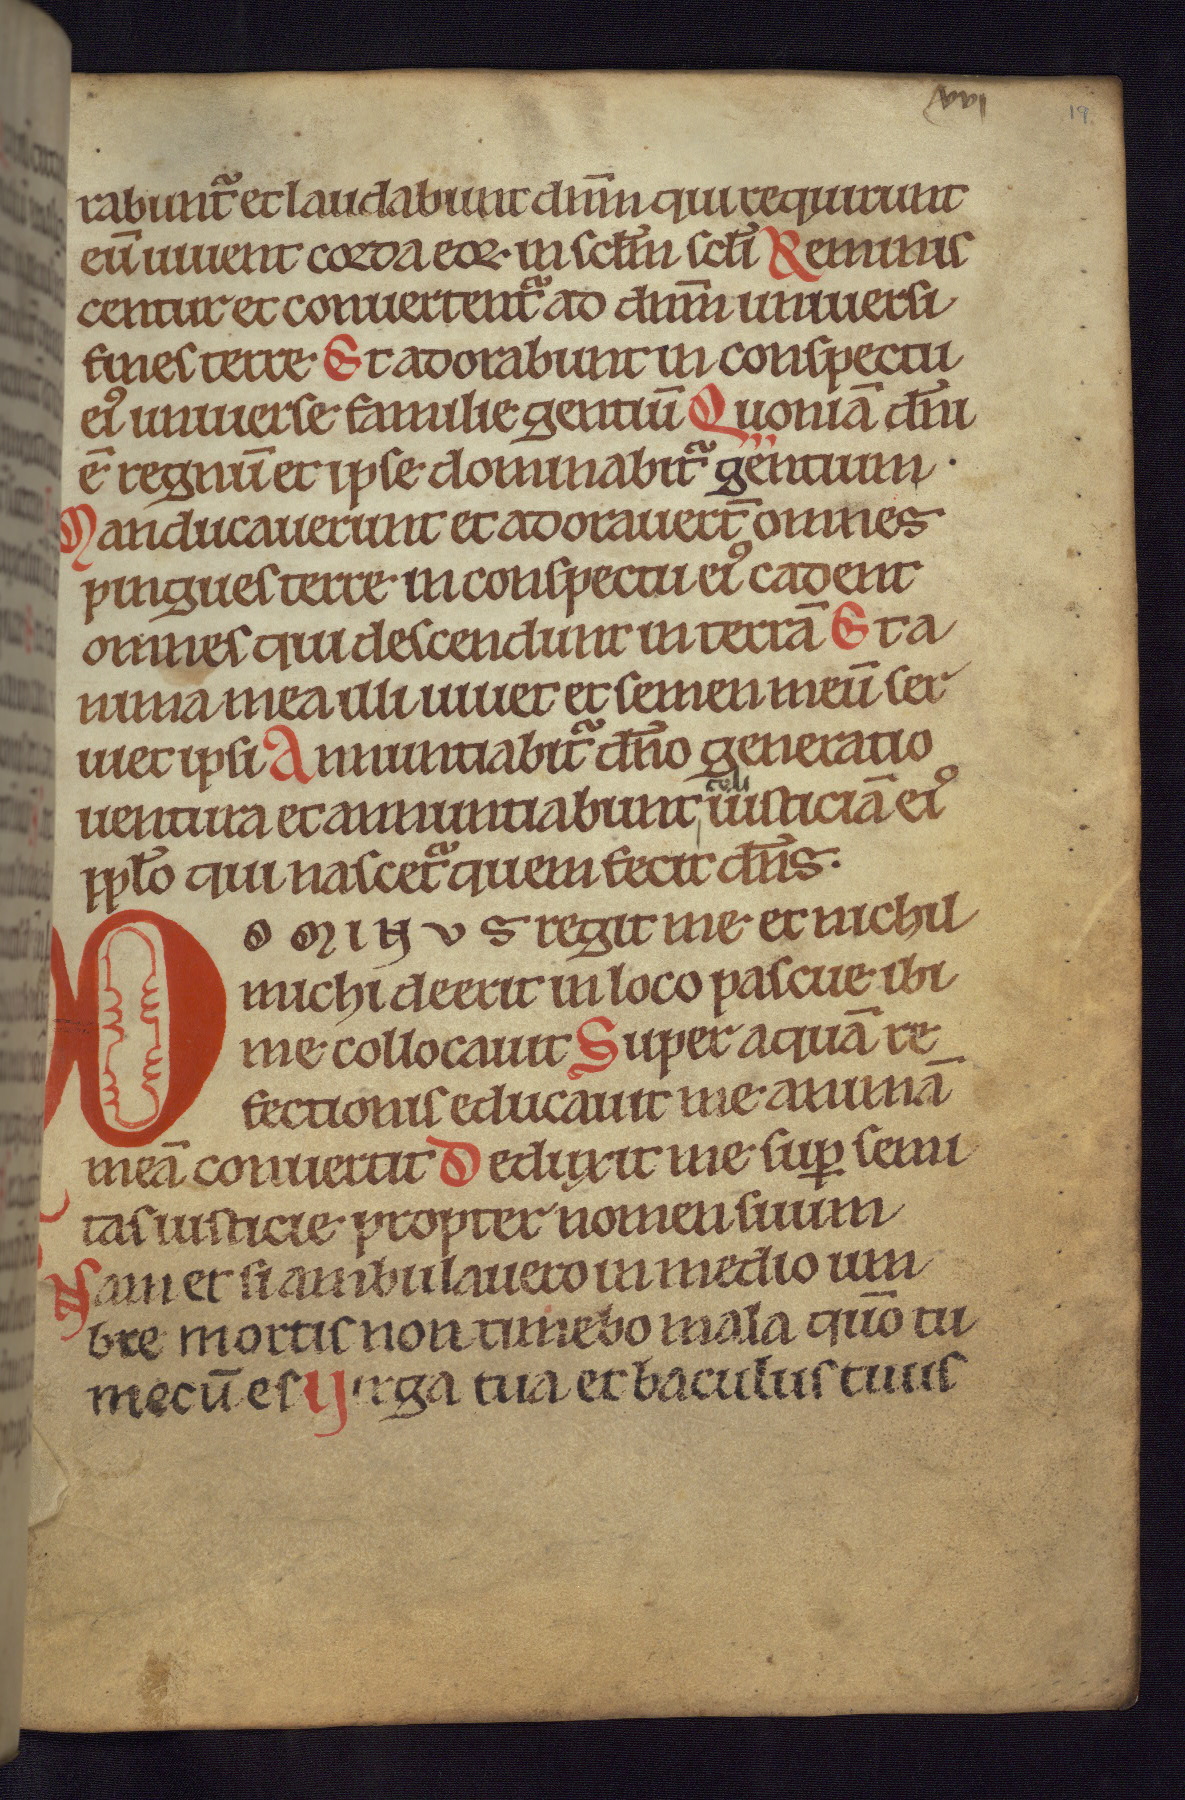 xvi 19.
rabunt᷑ et laudabunt dn̄m qui requirunt
eū uiuent corda eoꝝ in scl̄m scl̄i Reminis
centur et conuertent᷑ ad dn̄m uniuersi
fines terre Et adorabunt in conspectu
eiꝰ uniuerse familie gentiū Quoniā dn̄i
ē regnū et ipse dominabit᷑ gentium ·
Manducauerunt et adorauert̄ omnes
pingues terre in conspectu eiꝰ cadent
omnes qui descendunt in terrā Et a
nima mea illi uiuet et semen meū ser
uiet ipsi Annuntiabit᷑ dn̄o generatio
celi
uentura et annuntiabunt iusticiā eiꝰ
ppl̄o qui nascet᷑ quem fecit dn̄s.
DOMINVS regit me et nichil
michi deerit in loco pascue ibi
me collocauit Super aquā re
fectionis educauit me animā
meā conuertit Deduxit me suꝑ semi
tas iusticie propter nomen suum
Nam et si ambulauero in medio um
bre mortis non timebo mala quō tu
mecū es Virga tua et baculus tuus